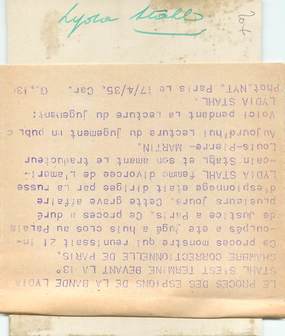 Lydia Stahl
LE PROCES DES ESPIGNS DE LÀ BANDE LYDIA
STAHL S'EST TERMINE BEVANT LA 13°
CHAMBRE CORRECTIONNELLE DE PARIS.
Ce procès monstre qui reunissait 21 in-
coupés a ete jugé a huis clos au Palais
de justice a Paris. Ce procès a duré
plusieurs jours. Cette grave affaire
d'espionnage etait dirigée par la russe
LYDIA STAHL femme divorcée de l'améri-
cain- Stahl et son amant le traducteur
Louis-Pierre- MARTIN.
Aujourd'hui Lecture du jugement en publ c
Voici pendant la Lecture du jugement:
LYDIA STAHL.
Phot.NYT. Paris Le 17/4/35. Car. G.,13